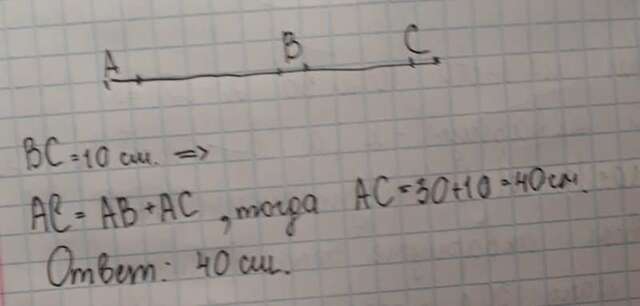 A B C
BC = 10 см. =>
AC = AB + AC, тогда AC = 30 + 10 = 40 см.
Ответ: 40 см.